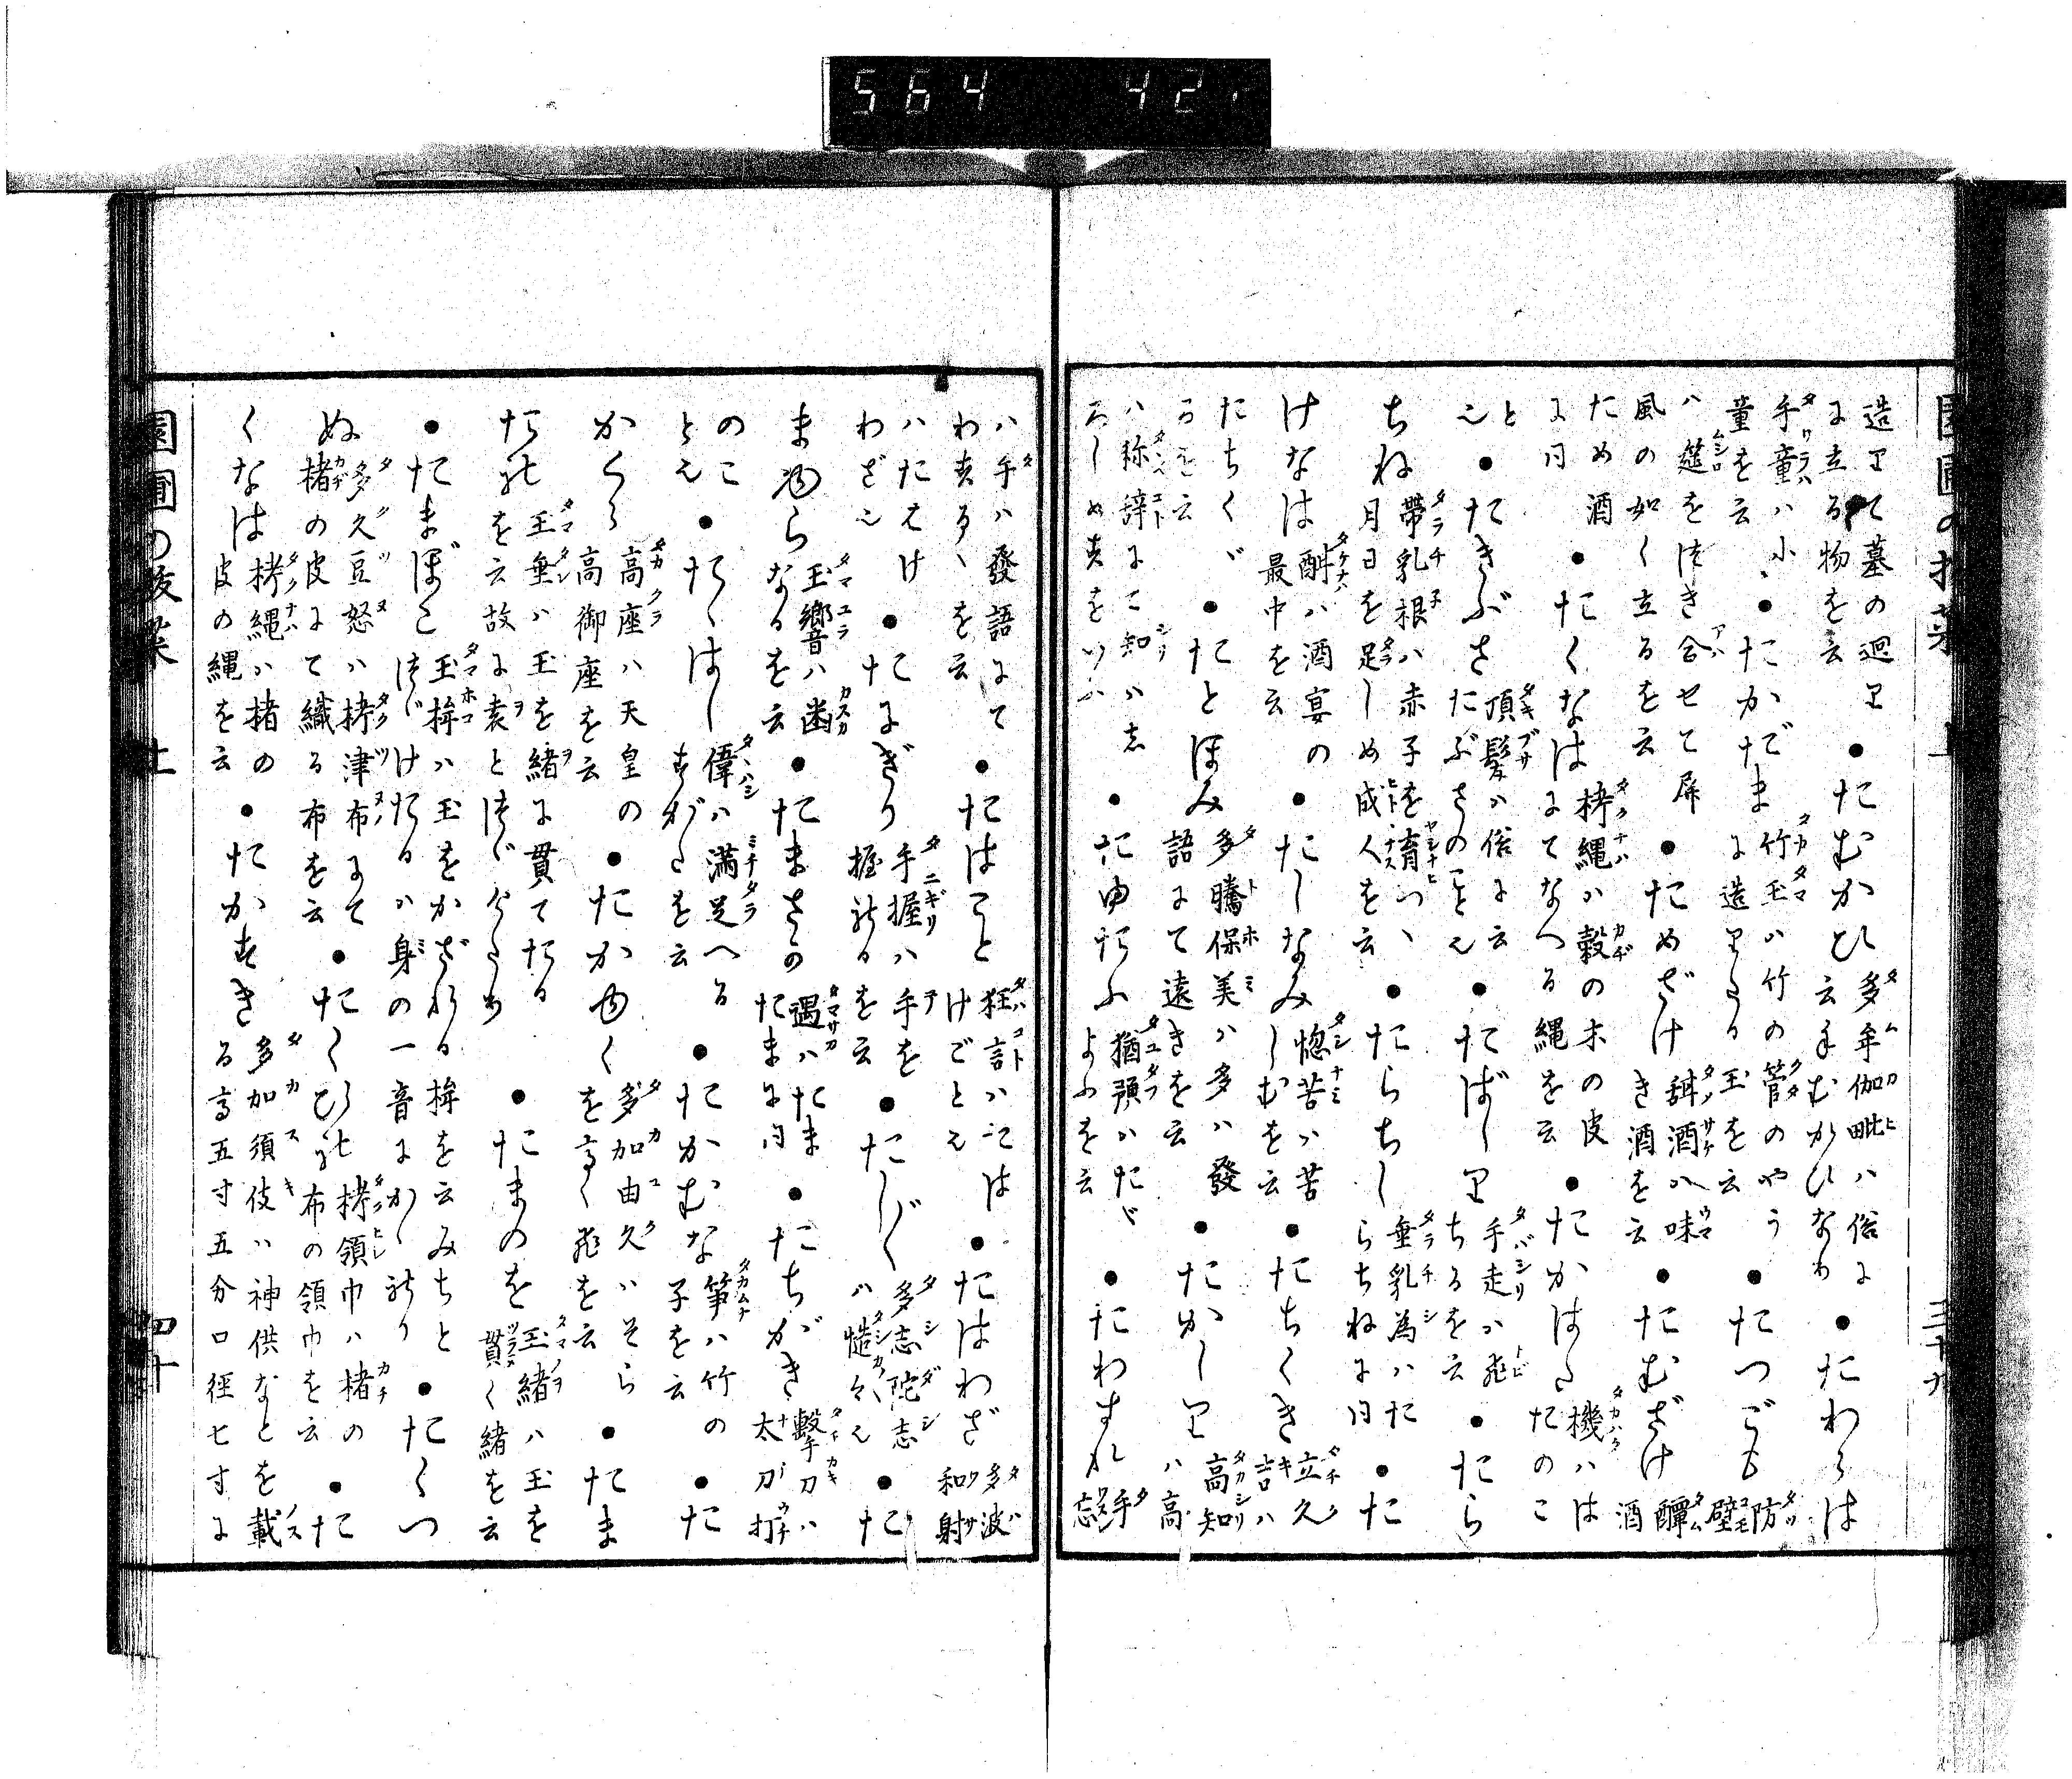 564 42
造里て墓の廻里 ●たむかひ 多牟伽毗ハ俗に ●たわらは
に立る物を云 云手むかひなり
手童ハ小 ●たかだま 竹玉ハ竹の管のやう ●たつごも 防
童を云 に造里たる玉を云 壁
ハ筵をつき合せて屏 ●ためざけ 味 ●たむざけ 醰
風の如く立るを云 き酒を云 酒
ため酒 ●たくなは 栲縄ハ穀の木の皮 ●たかはた 機ハは
に同 にてなへる縄を云 たのこ
と ●たきぶさ 頂髪ハ俗に云 ●たばしり 手走ハ飛 ●たら
たぶさのこと ちるを云
ちね 帶乳根ハ赤子を育 ●たらちし 垂乳為ハた ●た
月日を足しめ成人を云 らちねに同
けなは 酣ハ酒宴の ●たしなみ 惚苦ハ苦 ●たちくき 立久
最中を云 しむを云 吉ハ
たちくゞ ●たとほみ 多騰保美ハ多ハ發 ●たかしり 高知
るを云 語にて遠きを云 ハ高
ハ称辞にて知ハ志 ●たゆたふ 猶預ハたゞ ●たわすれ 手
ろしめすをいふ よふを云 忘
ハ手ハ發語にて ●たはこと 狂言ハたは ●たはわざ 多波
わするゝを云 けごと 和射
ハたはけ ●たにぎり 手握ハ手を ●たしだし 多志陀志 ●た
わざ 握るを云 ハ慥々
まゆら 玉響ハ幽 ●たまさか 遇ハたま ●たちがき 擊刀ハ
なるを云 たまに同 太刀打
のこ ●たゝはし 偉ハ満足へる ●たかむな 筍ハ竹の ●た
すがたを云 子を云
かくら 高座ハ天皇の ●たかゆく 多加由久ハそら ●たま
高御座を云 を高く飛を云
たれ 玉垂ハ玉を緒に貫てたる ●たまのを 玉緒ハ玉を
を云故に とつゞけたり 貫く緒を云
●たまぼこ 玉桙ハ玉をかざれる桙を云みちと ●たくつ
つゞけたるハ身の一音にかゝれり
ぬ 多久豆怒ハ栲津布にて ●たくひれ 栲領巾ハ楮の ●た
楮の皮にて織る布を云 布の領巾を云
くなは 栲縄ハ楮の ●たかすき 多加須伎ハ神供なとを載
皮の縄を云 る高五寸五分口径七寸に
四十